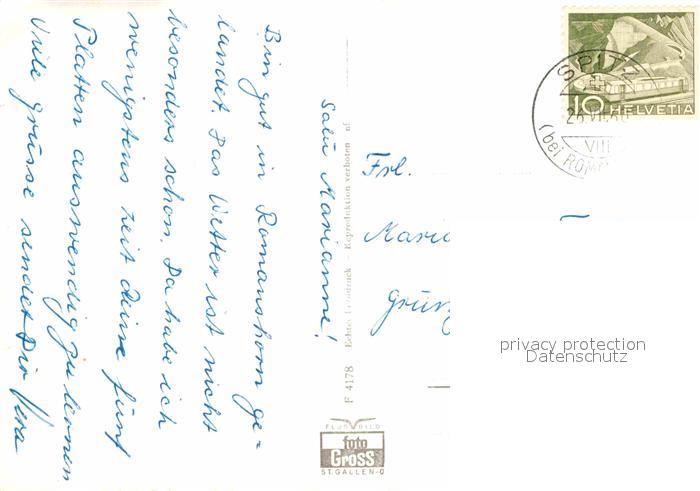 Salü Marianne!
Bin gut in Romanshorn ge=
landet. Das Wetter ist nicht
besonders schon. Da habe ich
wenigstens zeit deine fünf
Platten auswendig zu lernen
Viele grüsse sendet Dir Vera
F 4178 Echte Reproduktion verboten
FLUGBILD
foto
Gross
ST. GALLEN-O
SPITZ
VIII
(bei ROM
10 HELVETIA
Frl.
Mari
privacy protection
Datenschutz